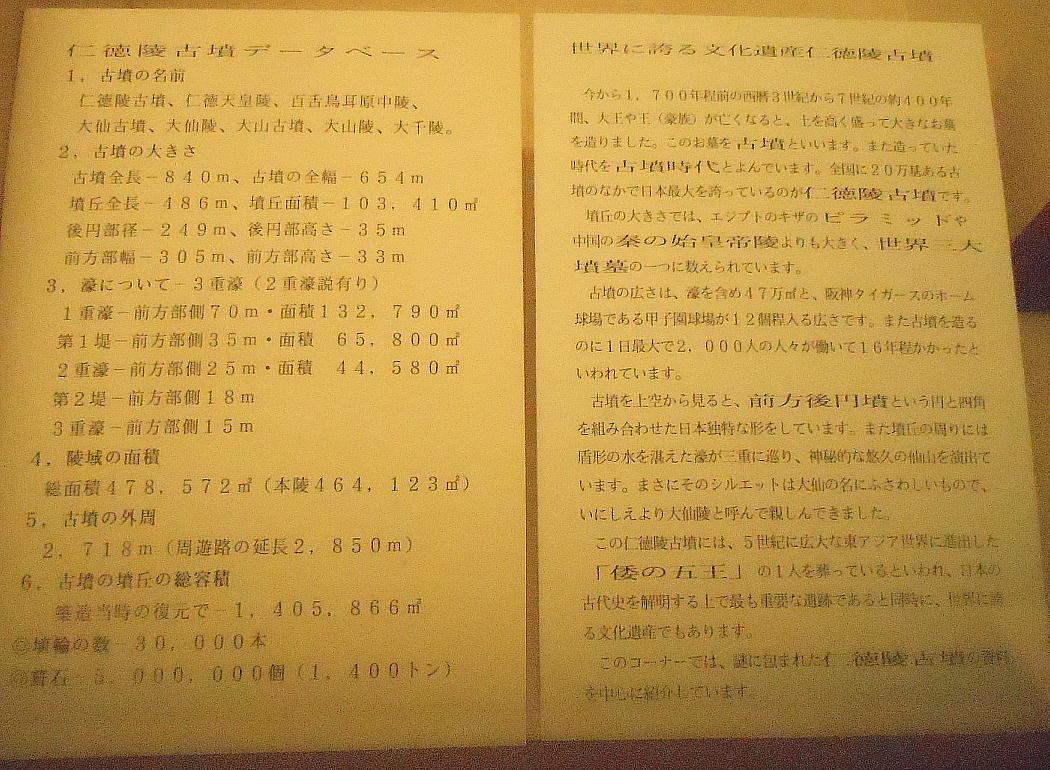 仁徳陵古墳データベース
1．古墳の名前
仁徳陵古墳、仁徳天皇陵、百舌鳥耳原中陵、
大仙古墳、大仙陵、大山古墳、大山陵、大千陵。
2．古墳の大きさ
古墳全長－840m、古墳の全幅－654m
墳丘全長－486m、墳丘面積－103，410㎡
後円部径－249m、後円部高さ－35m
前方部幅－305m、前方部高さ－33m
3．濠について－3重濠（2重濠説有り）
1重濠－前方部側70m・面積132，790㎡
第1堤－前方部側35m・面積　65，800㎡
2重濠－前方部側25m・面積　44，580㎡
第2堤－前方部側18m
3重濠－前方部側15m
4．陵域の面積
総面積478，572㎡（本陵464，123㎡）
5．古墳の外周
2，718m（周遊路の延長2，850m）
6．古墳の墳丘の総容積
築造当時の復元で－1，405，866㎡
◎埴輪の数－30，000本
◎葺石－5，000，000個（1，400トン）
世界に誇る文化遺産仁徳陵古墳
今から1，700年程前の西暦3世紀から7世紀の約400年
間、大王や王（豪族）が亡くなると、土を高く盛って大きなお墓
を造りました。このお墓を古墳といいます。また造っていた
時代を古墳時代とよんでいます。全国に20万基ある古
墳のなかで日本最大を誇っているのが仁徳陵古墳です。
墳丘の大きさでは、エジプトのギザのピラミッドや
中国の秦の始皇帝陵よりも大きく、世界三大
墳墓の一つに数えられています。
古墳の広さは、濠を含め47万㎡と、阪神タイガースのホーム
球場である甲子園球場が12個程入る広さです。また古墳を造る
のに1日最大で2，000人の人々が働いて16年程かかったと
いわれています。
古墳を上空から見ると、前方後円墳という円と四角
を組み合わせた日本独特な形をしています。また墳丘の周りには
盾形の水を湛えた濠が三重に巡り、神秘的な悠久の仙山を演出て
います。まさにそのシルエットは大仙の名にふさわしいもので、
いにしえより大仙陵と呼んで親しんできました。
この仁徳陵古墳には、5世紀に広大な東アジア世界に進出した
「倭の五王」の1人を葬っているといわれ、日本の
古代史を解明する上で最も重要な遺跡であると同時に、世界に誇
る文化遺産でもあります。
このコーナーでは、謎に包まれた仁徳陵古墳の資料
を中心に紹介しています。